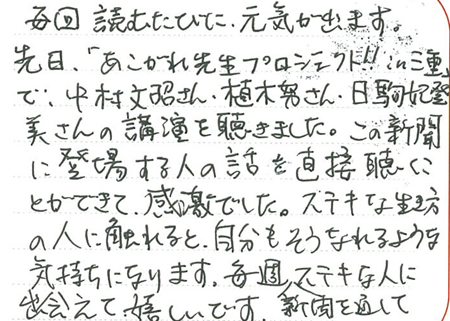 毎回 読むたびに、元気が出ます。
先日、「あこがれ先生プロジェクト!! in 三重
で、中村文昭さん・植木努さん・日駒妃登
美さんの講演を聴きました。この新聞
に登場する人の話を直接聴くこ
とができて、感激でした。ステキな生き方
の人に触れると、自分もそうなれるような
気持ちになります。毎週、ステキな人に
出会えて嬉しいです。新聞を通して